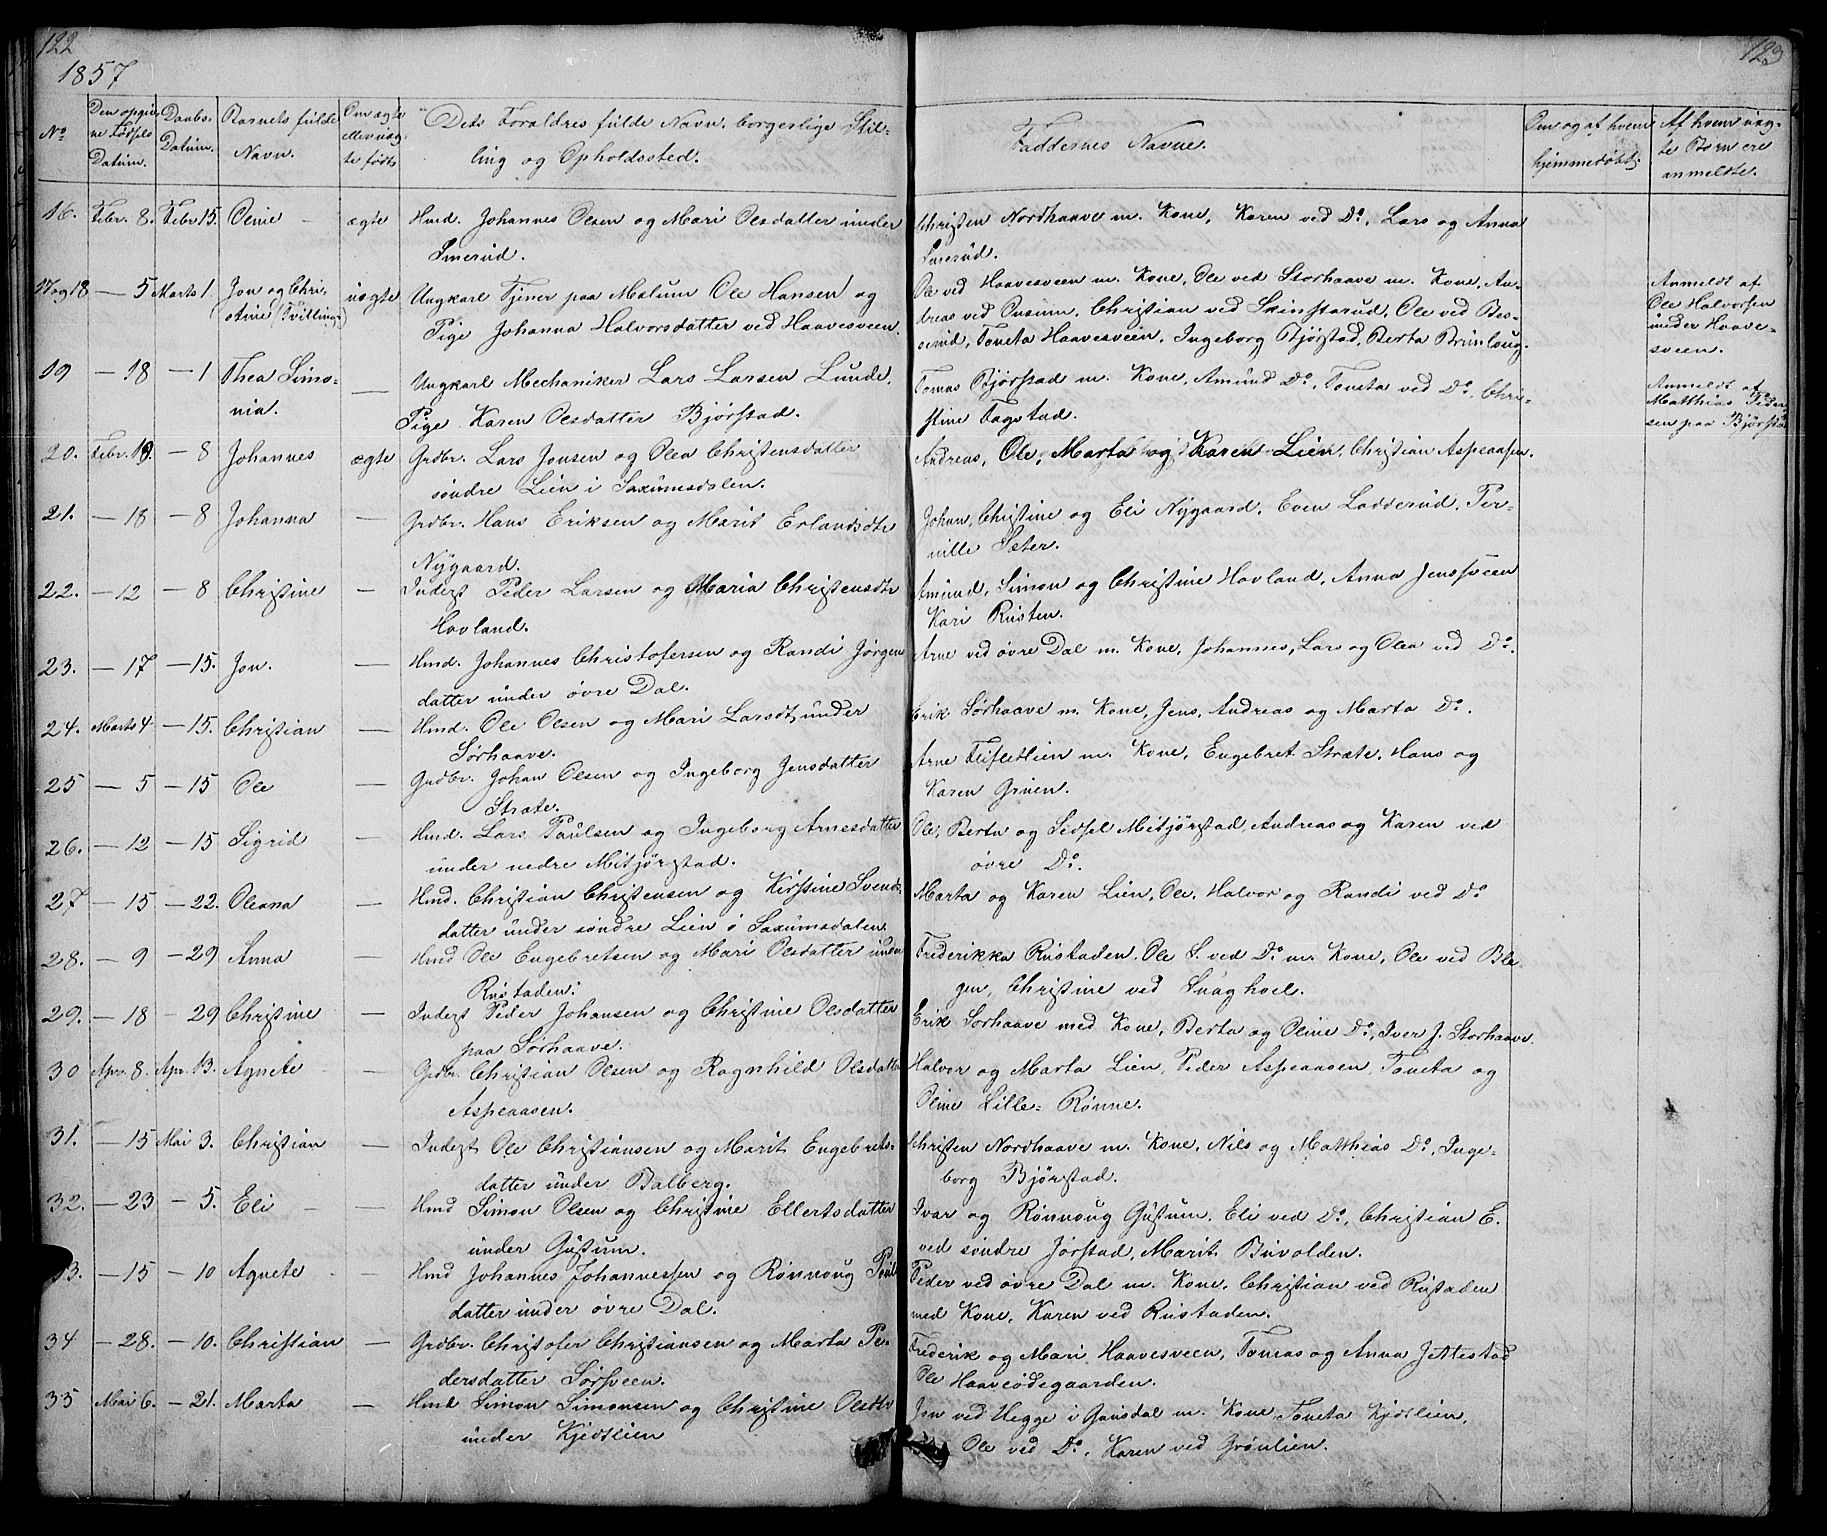 122
1857
No
Den opgiv-
ne Fødsels
Datum.
Daabs-
Datum.
Barnets fulde
Navn.
Om ægte
eller uæg-
te født
Dets Foraldres fulde Navn, borgerlige Stil-
ling og Opholdssted.
16. Febr. 8. Febr 15. Oline – ægte Hmd. Johannes Olsen og Mari Olsdatter under
Smerud.
17 og 18 – 5 Marts 1. Jon og Chri- uægte Ungkarl Tjener paa Melum Ole Hansen og
stine (Tvillinge) Pige Johanna Halvorsdatter ved Haavesveen.
19 – 18 – 1 Thea Simo- — Ungkarl Mechaniker Lars Larsen Lunde,
nia. Pige Karen Olsdatter Bjørstad.
20. Febr. 19. – 8 Johannes ægte Grdbr. Lars Jonsen og Olea Christensdatter
søndre Lien i Saxumsdalen.
21. – 18 – 8 Johanna — Grdbr. Hans Eriksen og Marit Erlandsdtr
Nygaard.
22. – 12 – 8 Christine — Inderst Peder Larsen og Maria Christensdtr
Hovland.
23. – 17 – 15. Jon. — Hmd. Johannes Christofersen og Randi Jørgen
datter under øvre Dal.
24. Marts 4 – 15. Christian — Hmd. Ole Olsen og Mari Larsdt, under
Sørhaave.
25 – 5 – 15 Ole — Grdbr. Johan Olsen og Ingeborg Jensdatter
Strate.
26. – 12 – 15 Sigrid — Hmd. Lars Paulsen og Ingeborg Arnesdatter
under nedre Mitjørstad.
27 – 15 – 22. Oleana — Hmd. Christian Christensen og Kirstine Svends-
datter under søndre Lien i Saxumsdalen.
28. – 9 – 29 Anna — Hmd Ole Engebretsen og Mari Olsdatter under
Rustaden.
29. – 18 – 29 Christine — Inderst Peder Johansen og Christine Olsdatter
paa Sørhaave.
30 Apr. 8. Apr. 13. Agnete — Grdbr. Christian Olsen og Ragnhild Olsdatter
Aspeaasen.
31. – 15 Mai 3. Christian — Inderst Ole Christiansen og Marit Engebrets-
datter under Balberg.
32. – 23 – 5. Eli — Hmd Simon Olsen og Christine Ellertsdatter
under Gustum.
33. – 15 – 10 Agnete — Hmd Johannes Johannessen og Rønnoug Pouls
datter under øvre Dal.
34 – 28. – 10. Christian — Grdbr. Christofer Christiansen og Marta Pe-
dersdatter Sørsveen.
35 Mai 6. – 21. Marta — Hmd Simon Simonsen og Christine Olsdtr
under Kjøslien
123
Faddernes Navne.
Om og af hvem
hjemmedøbt.
Af hvem uæg-
te Børn ere
anmeldte.
Christen Nordhaave m. Kone, Karen ved Do, Lars og Anna
Smerud.
Ole ved Haavesveen m. Kone, Ole ved Storhaave m. Kone, An-
dreas ved Pusum, Christian ved Skinstarud, Ole ved Bes-
serud, Toneta Haavesveen, Ingeborg Bjørstad, Berta Brunlaug.
Anmeldt af
Ole Halvorsen
under Haave-
sveen.
Tomas Bjørstad m. Kone, Amund Do, Toneta ved Do, Chri-
stine Fagstad.
Anmeldt af
Matthias Peder-
sen paa Bjørstad
Andreas, Ole, Marta og Karen Lien, Christian Aspeaasen.
Johan, Christine og Eli Nygaard, Even Ladderud, Per-
nille Sæter.
Amund, Simon og Christine Hovland, Anna Jenssveen
Kari Rusten.
Arne ved øvre Dal m. Kone, Johannes, Lars og Olea ved Do.
Erik Sørhaave m. Kone, Jens, Andreas og Marta Do.
Arne Flifletlien m. Kone, Engebret Strate, Hans og
Karen Gruen.
Ole, Berta og Sidsel Mitjørstad, Andreas og Karen ved
øvre Do.
Marta og Karen Lien, Ole, Halvor og Randi ved Do
Frederikka Rustaden, Ole S. ved Do m. Kone, Ole ved Ble-
gen, Christine ved Svaghoel.
Erik Sørhaave med Kone, Berta og Oline Do, Iver J. Storhaave.
Halvor og Marta Lien, Peder Aspeaasen, Toneta og
Oline Lille-Rønne.
Christen Nordhaave m. Kone, Nils og Matthias Do, Inge-
borg Bjørstad.
Ivar og Rønnoug Gustum, Eli ved Do, Christian E.
ved søndre Jørstad, Marit Buvolden.
Peder ved øvre Dal m. Kone, Christian ved Rustaden
med Kone, Karen ved Rustaden.
Frederik og Mari Haavesveen, Tomas og Anna Jettestad
Ole Haaveødegaarden.
Jon ved Hegge i Gausdal m. Kone, Toneta Kjøslien,
Ole ved Do, Karen ved Grønlien.